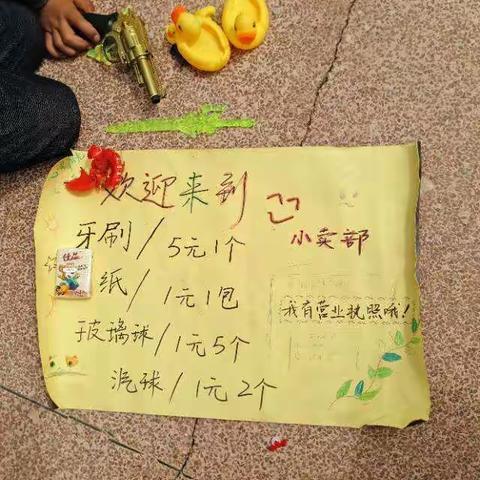 欢迎来到
小卖部
牙刷/5元1个
纸/1元1包
玻璃球/1元5个
汽球/1元2个
我有营业执照哦!